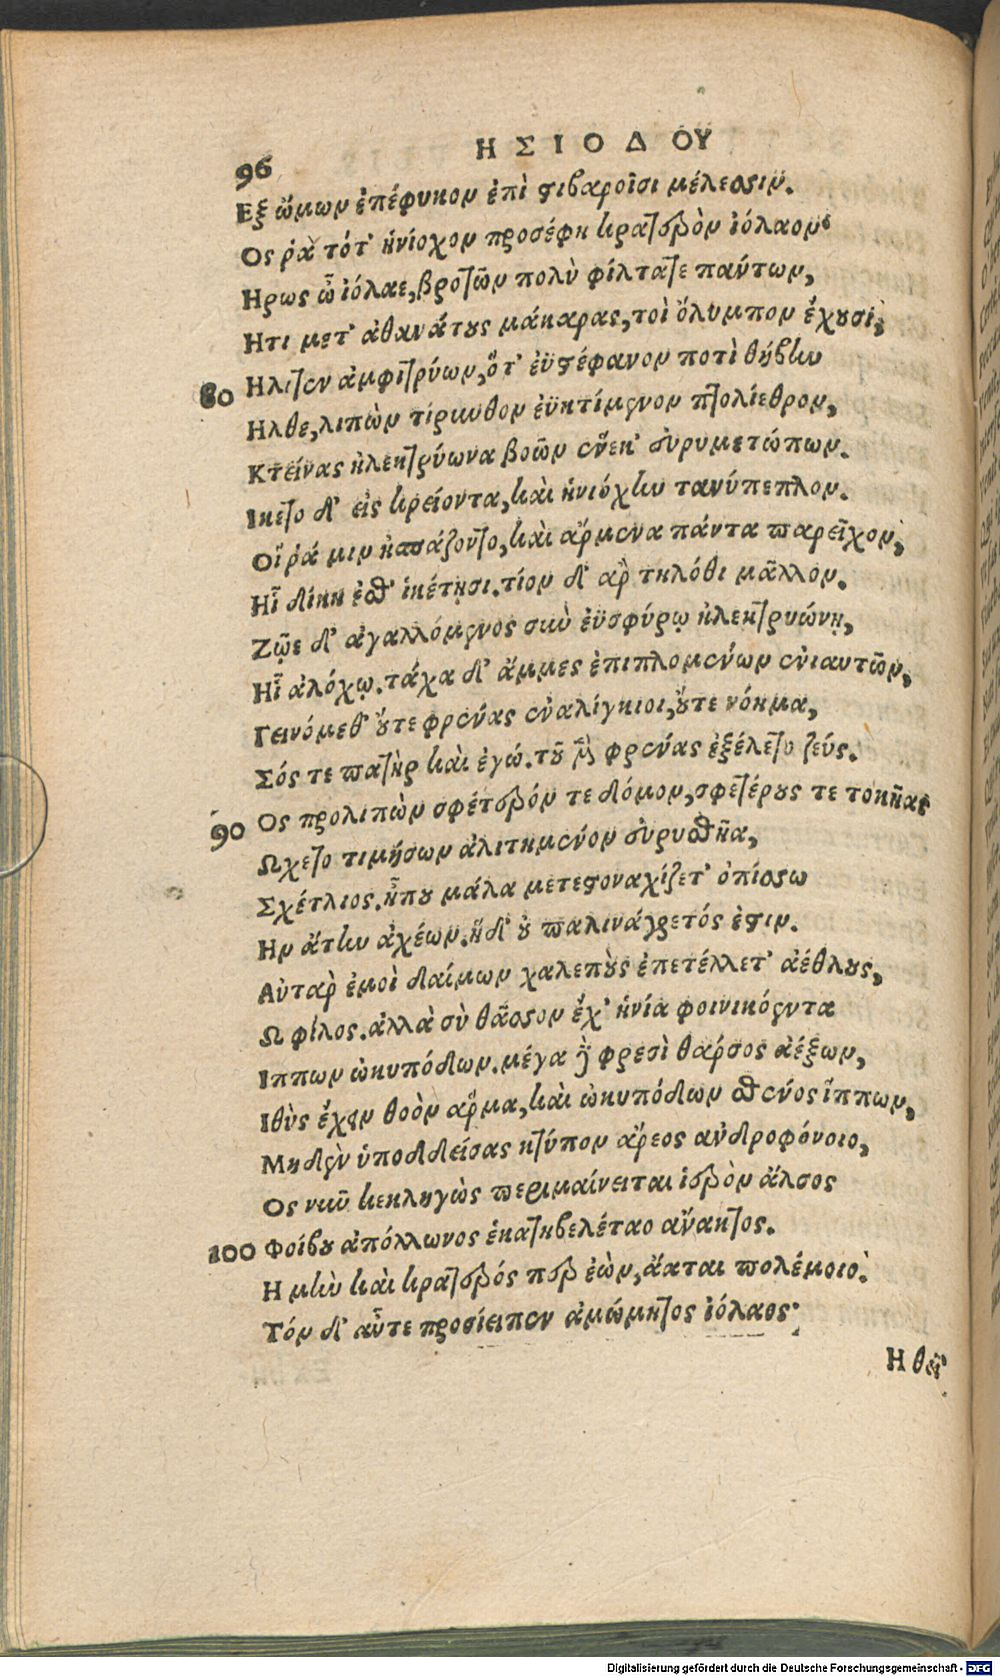 96
ΗΣΙΟΔΟΥ
Εξ ὤμων ἐπέφυκον ἐπὶ στιβαροῖσι μέλεσσιν.
Ος ῥὰ τότ' ἡνίοχον προσέφη κρατερὸν ἰόλαον·
Ηρως ὦ ἰόλαε, βροτῶν πολὺ φίλτατε πάντων,
Ητι μετ' ἀθανάτους μάκαρας, τοὶ ὄλυμπον ἔχουσι,
80 Ηλιτεν ἀμφιτρύων, ὅτ' ἐϋστέφανον ποτὶ θήβην
Ηλθε, λιπὼν τίρυνθον ἐϋκτίμενον πτολίεθρον,
Κτείνας ἠλεκτρύωνα βοῶν ἕνεκ' εὐρυμετώπων.
Ικετο δ' εἰς κρείοντα, καὶ ἡνιόχην τανύπεπλον.
Οἵ ῥά μιν ἠσπάζοντο, καὶ ἄρμενα πάντα παρεῖχον,
Ηἷ δίκη ἐσθ' ἱκέτῃσι. τίον δ' ἀρ τηλόθι μᾶλλον.
Ζῷε δ' ἀγαλλόμενος σὺν ἐϋσφύρῳ ἠλεκτρυώνῃ,
Ηἷ ἀλόχῳ. τάχα δ' ἄμμες ἐπιπλομένων ἐνιαυτῶν,
Γεινόμεθ' οὔτε φρένας ἐναλίγκιοι, οὔτε νόημα,
Σός τε πατὴρ καὶ ἐγώ. τοῦ μὲν φρένας ἐξέλετο ζεύς.
90 Ος προλιπὼν σφέτερόν τε δόμον, σφετέρους τε τοκῆας
Ωχετο τιμήσων ἀλιτημένον εὐρυσθῆα,
Σχέτλιος. ἦπου μάλα μετεστοναχίζετ' ὀπίσσω
Ην ἄτην ἀχέων. ἥδ' οὐ παλινάγρετός ἐστιν.
Αὐτὰρ ἐμοὶ δαίμων χαλεποὺς ἐπετέλλετ' ἀέθλους,
Ω φίλος. ἀλλὰ σὺ θᾶσσον ἔχ' ἡνία φοινικόεντα
Ιππων ὠκυπόδων. μέγα δὲ φρεσὶ θάρσος ἀέξων,
Ιθὺς ἔχειν θοὸν ἅρμα, καὶ ὠκυπόδων σθένος ἵππων,
Μηδὲν ὑποδδείσας κτύπον ἄρεος ἀνδροφόνοιο,
Ος νῦν κεκληγὼς περιμαίνεται ἱερὸν ἄλσος
100 Φοίβου ἀπόλλωνος ἑκατηβελέταο ἄνακτος.
Η μὴν καὶ κρατερός περ ἐὼν, ἄαται πολέμοιο.
Τόν δ' αὖτε προσέειπεν ἀμώμητος ἰόλαος·
Η θεῖ'
Digitalisierung gefördert durch die Deutsche Forschungsgemeinschaft - DFG